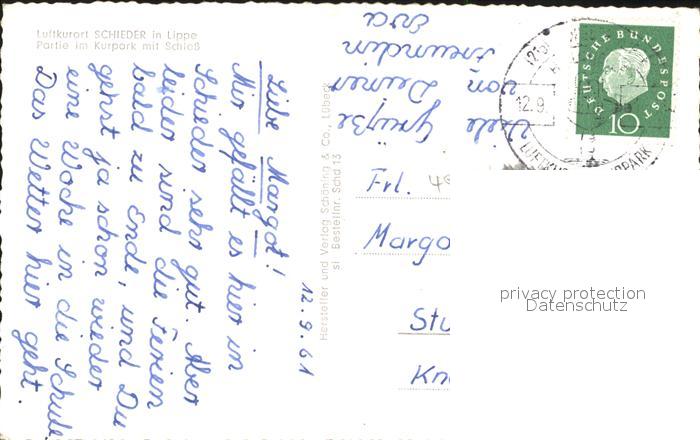 Luftkurort SCHIEDER in Lippe
Partie im Kurpark mit Schloß
Liebe Margot!
Mir gefällt es hier in
Schieder sehr gut. Aber
leider sind die Ferien
bald zu Ende, und Du
gehst ja schon wieder
eine Woche in die Schule
Das Wetter hier geht.
12.9.61
Viele Grüße
von Deiner
Freundin
Eva
Hersteller und Verlag Schöning & Co., Lübeck
Bestellnr. Schd 13
DEUTSCHE BUNDESPOST
10
12.9.
Frl.
Margo
Stu
Kn
privacy protection
Datenschutz